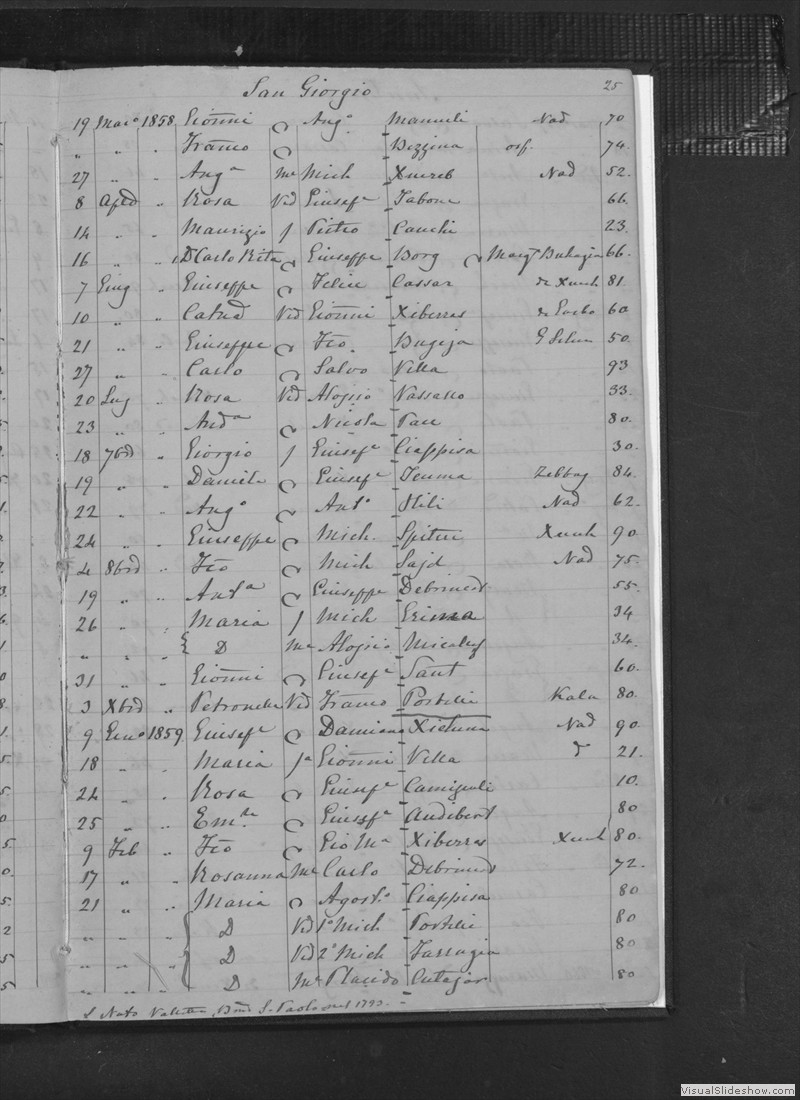 San Giorgio 25
19 Mar° 1858 Giōnni Ang° Mamuli Nad 70
„ „ „ Franco Bizzina orf. 74
27 „ „ Ang^a M^e Mich Xuereb Nad 52
8 „ Rosa Vid Giusep^e Tabone 66
14 „ „ Maurizio f Pietro Cauchi 23
16 „ „ D Carlo Rita Giuseppe Borg Marg^t Buhagia 66
7 Giug „ Giuseppe Felice Cassar de Xeuch 81
10 „ „ Vid Giōnni Xiberras 60
21 „ „ Giuseppe Fco Bugeja 50
27 „ „ Carlo Salvo Villa 93
20 Lug „ Rosa Vid Aloisio Vassallo 33
23 „ „ And^a Nicola Pau 80
18 7brē „ Giorgio f Giusep^e Ciappisa 30
19 „ „ Daniele Giusep^e Teuma Zebbug 84
22 „ „ Ang° Ant° Hili Nad 62
24 „ „ Giuseppe Mich. Spiteri Xeuch 90
4 8brē „ Fco Mich Sajd Nad 75
19 „ „ Ant^a Giuseppe Debrincat 55
26 „ „ Maria f Mich Grima 34
„ „ „ D M^e Aloisio Micallef 34
31 „ „ Giōnni Giusep^e Sant 60
3 Xbrē „ Petronilla Vid Franco Portelli Kala 80
9 Gen° 1859 Giusep^e Damiano Xicluna Nad 90
18 „ „ Maria f^a Giōnni Villa D 21
24 „ „ Rosa Giusep^e Camignoli 10
25 „ „ Em^le Giusep^e Audibert 80
9 Feb „ Fco Gio M^a Xiberras Xeuch 80
17 „ „ Rosanna M^e Carlo Debrincat 72
21 „ „ Maria Agost° Ciappisa 80
„ „ „ D Vid 1° Mich Portelli 80
„ „ „ D Vid 2° Mich Farrugia 80
„ „ „ D M^e Placido Cutajar 80
Nato S. Paolo 1793
VisualSlideshow.com